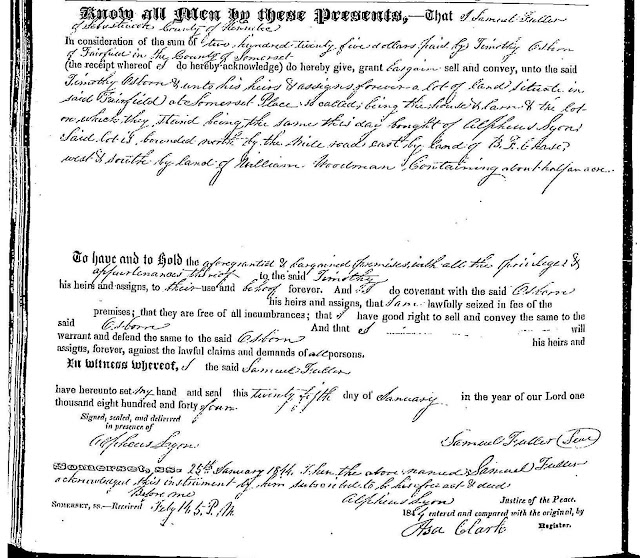 Know all Men by these Presents,—That I Samuel Fuller
of Sebasticook County of Kennebec
In consideration of the sum of two hundred twenty five dollars paid by Timothy Osborn
of Fairfield in the County of Somerset
(the receipt whereof I do hereby acknowledge) do hereby give, grant bargain sell and convey, unto the said
Timothy Osborn & unto his heirs & assigns forever a lot of land situate in
said Fairfield at Somerset Place so called; being the house & barn & the lot
on which they stand being the same this day bought of Alpheus Lyon
Said lot is bounded north by the mile road east by land of B. F. Chase,
west & south by land of William Woodman, Containing about half an acre
To have and to Hold the aforegranted & bargained premises, with all the privileges &
appurtenances thereof to the said Timothy
his heirs and assigns, to their use and behoof forever. And I do covenant with the said Osborn
his heirs and assigns, that I am lawfully seized in fee of the
premises; that they are free of all incumbrances; that I have good right to sell and convey the same to the
said Osborn And that I will
warrant and defend the same to the said Osborn his heirs and
assigns, forever, against the lawful claims and demands of all persons.
In witness whereof, I the said Samuel Fuller
have hereunto set my hand and seal this twenty fifth day of January in the year of our Lord one
thousand eight hundred and forty four
Signed, sealed, and delivered
in presence of
Alpheus Lyon
Samuel Fuller (Seal)
Somerset, ss. 25th January 1844. Then the above named Samuel Fuller
acknowledged this instrument by him subscribed to be his free act & deed
Before me Alpheus Lyon Justice of the Peace.
Somerset, ss.—Received Feby 14 5. P.M. 1844 entered and compared with the original, by
Asa Clark Register.